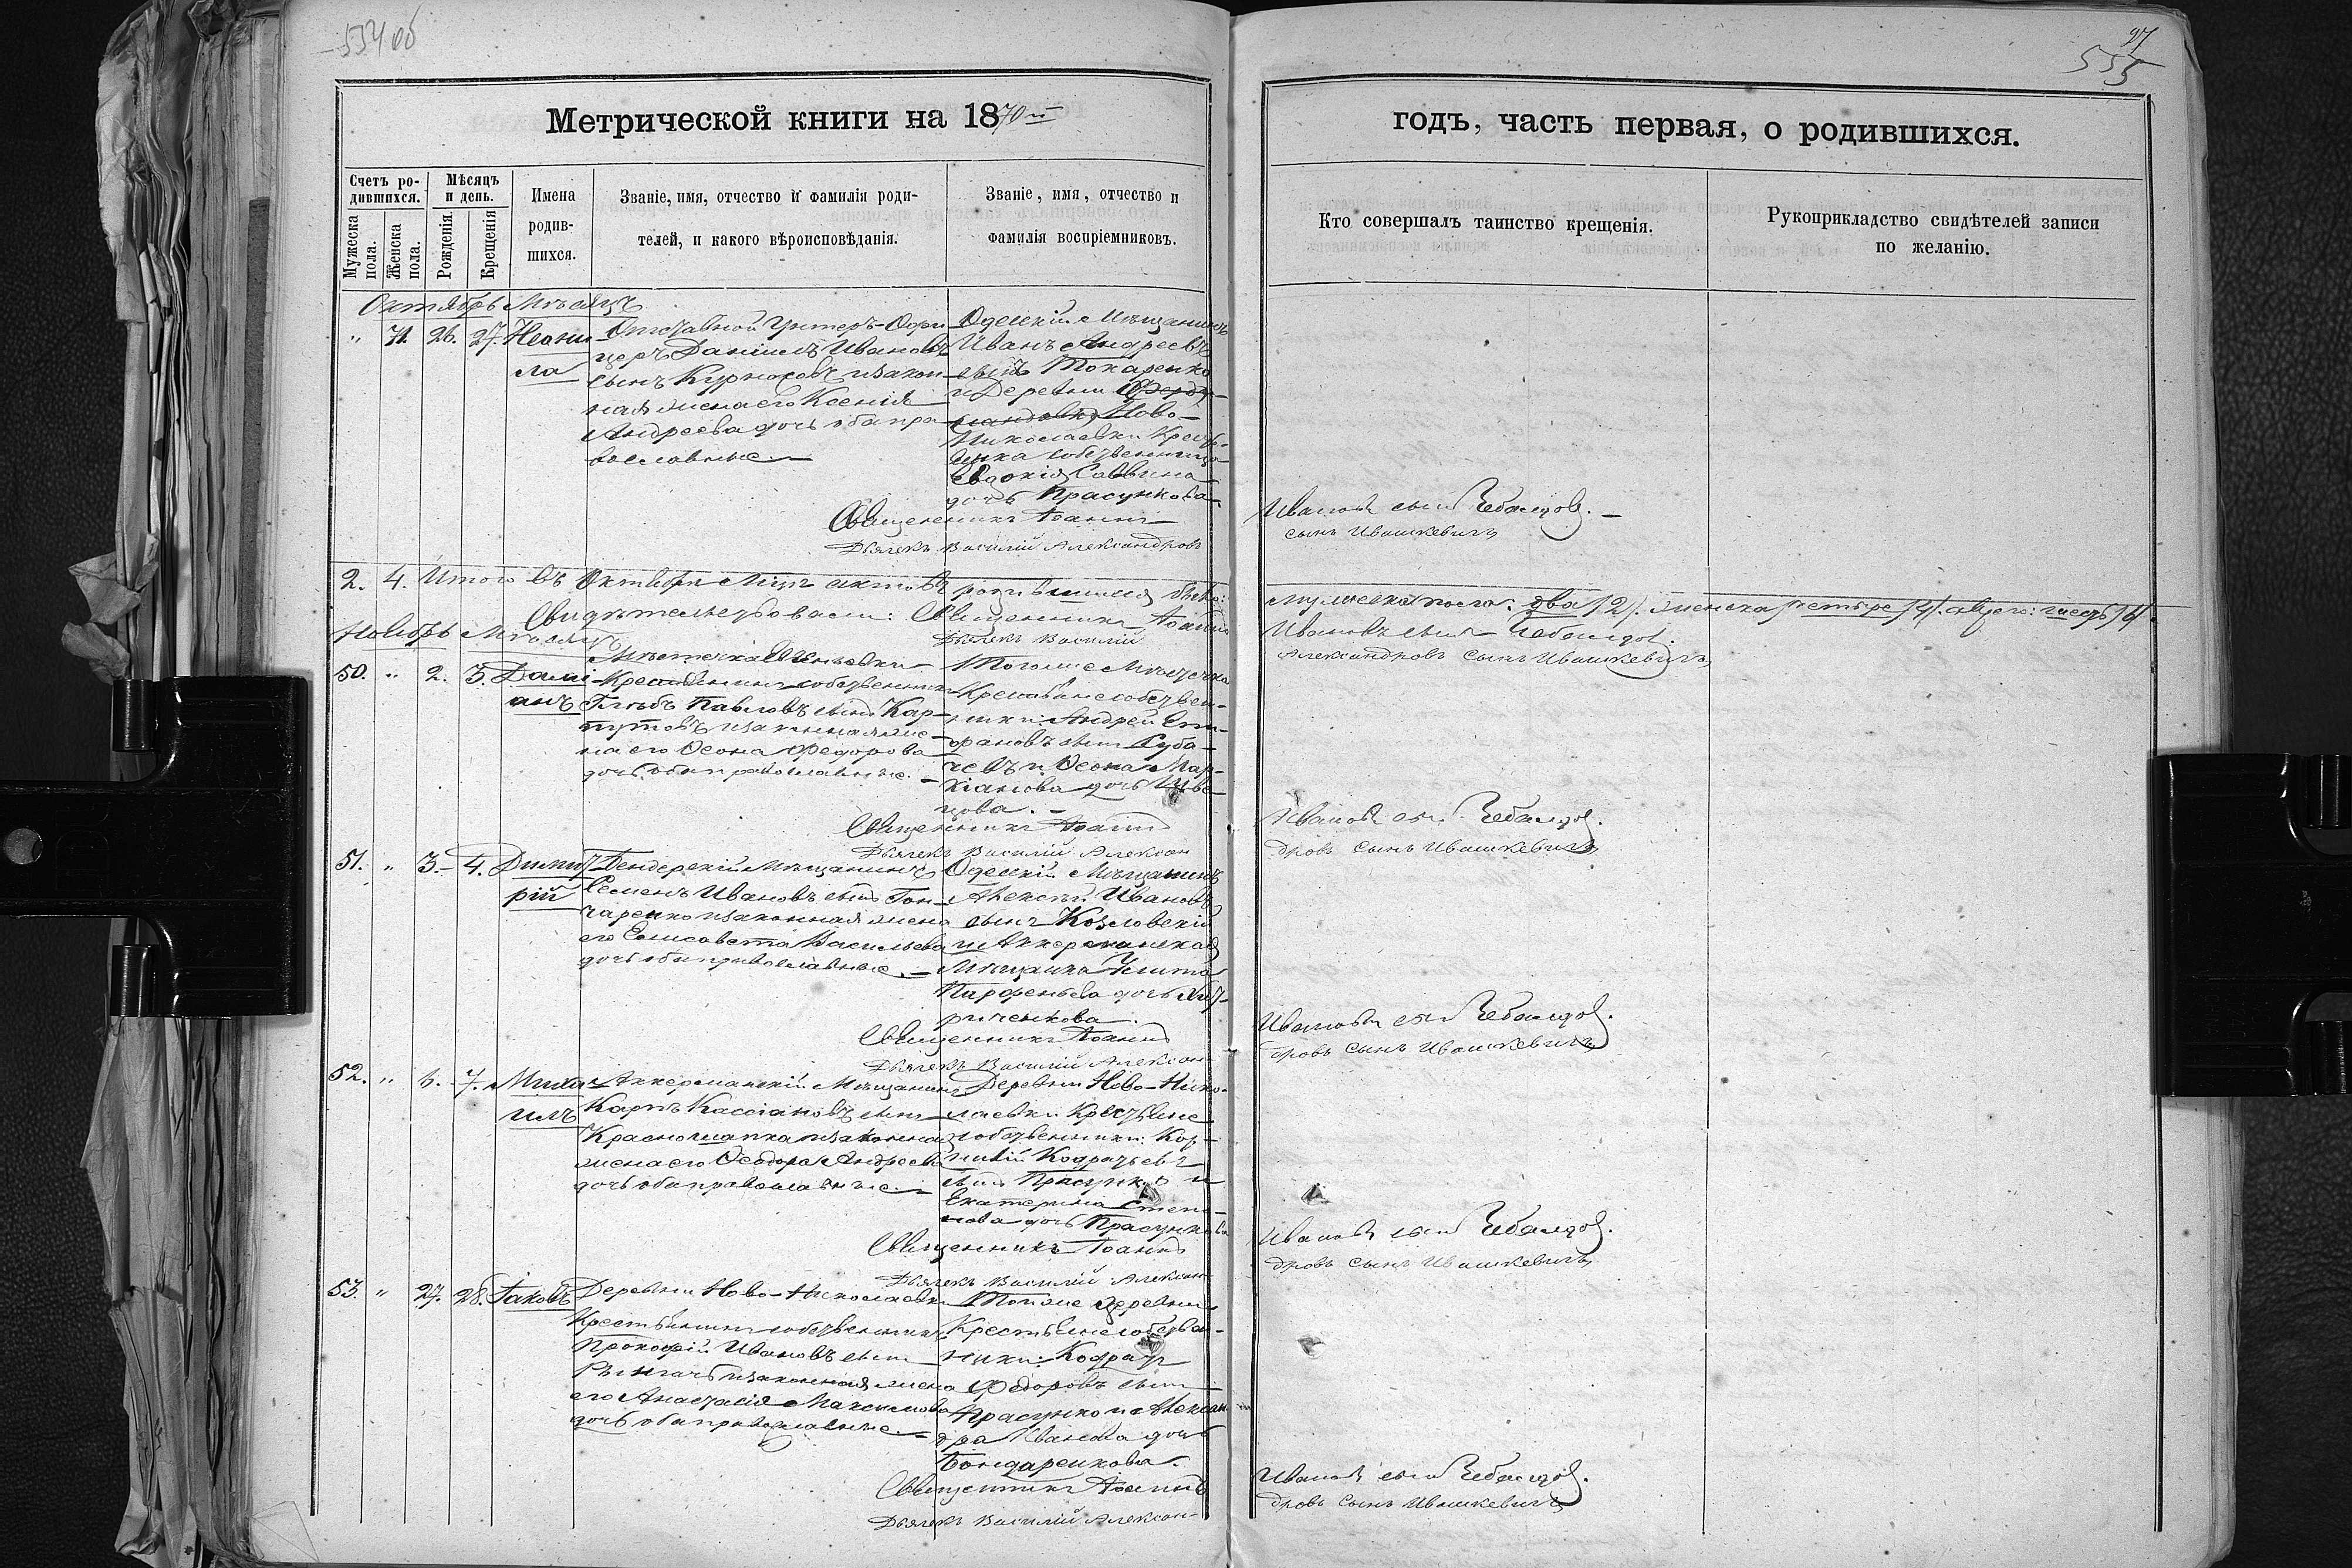 554 об
27
555
Метрической книги на 1870й
годъ, часть первая, о родившихся.
Счетъ родившихся.
Мѣсяцъ и день.
Мужеска пола.
Женска пола.
Рожденія.
Крещенія
Имена родившихся.
Званіе, имя, отчество и фамилія родителей, и какого вѣроисповѣданія.
Званіе, имя, отчество и фамилія воспріемниковъ.
Кто совершалъ таинство крещенія.
Рукоприкладство свидѣтелей записи
по желанію.
Октябрь Мѣсяцъ
" 71. 26. 27. Неони-
ла
Отставной Унтеръ-Офи-
церъ Даніилъ Ивановъ
сынъ Курносовъ и закон-
ная жена его Ксенія
Андреева дочь оба пра-
вославные.
Одескій Мѣщанинъ
Иванъ Андреевъ
сынъ Токаренко
и Деревни
Ново-
Николаевки Кресть-
янка собственница
Евдокія Саввина
дочь Прасункова.
Священникъ Іоаннъ
Ивановъ сынъ Чебандов.
Дьячекъ Василій Александровъ
сынъ Ивашкевичъ
2. 4. Итого въ Октябрѣ Мцѣ актовъ родившихся было:
мужеска пола: два /2/. женска четыре /4/. обоего: шесть /6/.
Свидѣтельствовали: Священникъ Іоаннъ
Ивановъ сынъ Чебандов.
Дьячекъ Василій
Александровъ сынъ Ивашкевичъ
Ноябрь Мѣсяцъ
50. " 2. 3. Дамі-
анъ
Мѣстечка
Крестьянинъ собственникъ
Глѣбъ Павловъ сынъ Кар-
путовъ и законная же-
на его Ѳеона Федорова
дочь, оба православные.
Тогоже Мѣстечка
Крестьяне собствен-
ники: Андрей Епи-
фановъ сынъ Губа-
чевъ и Ѳеона Мар-
кіанова дочь Шве-
цова.
Священникъ Іоаннъ
Ивановъ сынъ Чебандов.
Дьячекъ Василій Алексан
дровъ сынъ Ивашкевичъ
51. " 3. 4. Димит-
рій
Бендерскій Мѣщанинъ
Семенъ Ивановъ сынъ Гон-
чаренко и законная жена
его Елисавета Васильева
дочь оба православные.
Одескій Мѣщанинъ
Алексѣй Ивановъ
сынъ Козловскій
и Аккерманская
Мѣщанка Улита
Парфеньева дочь
Священникъ Іоаннъ
Ивановъ сынъ Чебандов.
Дьячекъ Василій Алексан-
дровъ сынъ Ивашкевичъ
52. " 6. 7. Миха-
илъ
Аккерманскій Мѣщанинъ
Карпъ Кассіановъ сынъ
Красношапка и законная
жена его Ѳеодора Андреева
дочь оба православные.
Деревни Ново-Нико-
лаевки Крестьяне
собственники: Кор-
нилій Кодратьевъ
сынъ Прасунко и
Екатерина Степа-
нова дочь Прасункова
Священникъ Іоаннъ
Ивановъ сынъ Чебандов.
Дьячекъ Василій Алексан-
дровъ сынъ Ивашкевичъ
53. " 27. 28. Іаковъ
Деревни Ново-Николаевки
Крестьянинъ собственникъ
Прокофій Ивановъ сынъ
и законная жена
его Анастасія Максимова
дочь оба православные.
Тойже деревни
Крестьяне собствен-
ники: Кодратъ
Федоровъ сынъ
Прасунко и Алексан-
дра Иванова дочь
Бондаренкова.
Священникъ Іоаннъ
Ивановъ сынъ Чебандов.
Дьячекъ Василій Алексан-
дровъ сынъ Ивашкевичъ